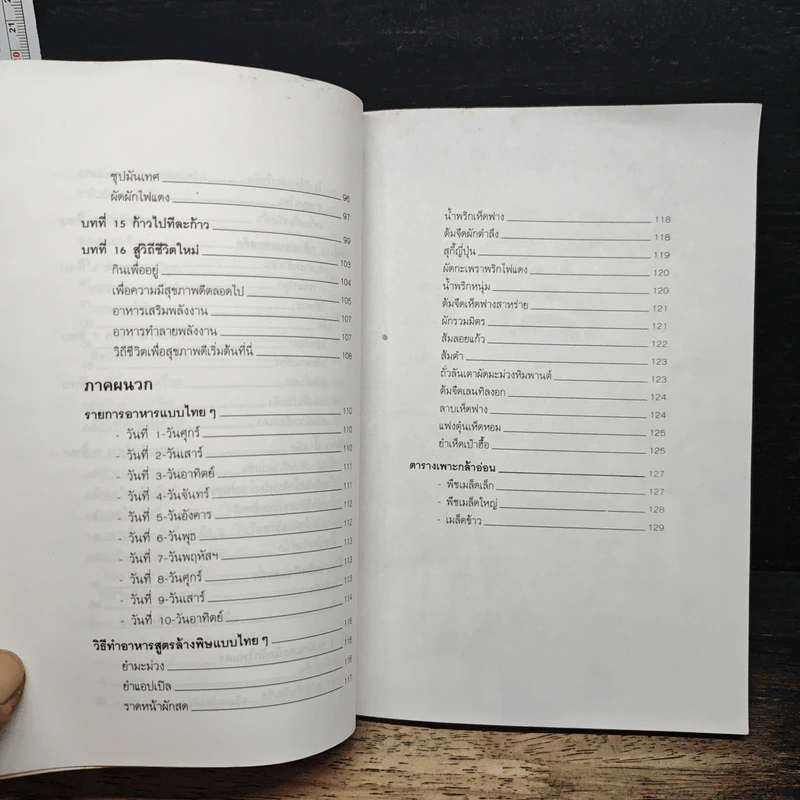 21
20
ซุปมันเทศ 96
ผัดผักไฟแดง 97
บทที่ 15 ก้าวไปทีละก้าว 99
บทที่ 16 สู่วิถีชีวิตใหม่ 103
กินเพื่ออยู่ 104
เพื่อความมีสุขภาพดีตลอดไป 105
อาหารเสริมพลังงาน 107
อาหารทำลายพลังงาน 107
วิถีชีวิตเพื่อสุขภาพดีเริ่มต้นที่นี่ 108
ภาคผนวก
รายการอาหารแบบไทย ๆ 110
- วันที่ 1-วันศุกร์ 110
- วันที่ 2-วันเสาร์ 110
- วันที่ 3-วันอาทิตย์ 111
- วันที่ 4-วันจันทร์ 111
- วันที่ 5-วันอังคาร 112
- วันที่ 6-วันพุธ 112
- วันที่ 7-วันพฤหัสฯ 113
- วันที่ 8-วันศุกร์ 113
- วันที่ 9-วันเสาร์ 113
- วันที่ 10-วันอาทิตย์ 114
วิธีทำอาหารสูตรล้างพิษแบบไทย ๆ 116
ยำมะม่วง 116
ยำแอปเปิล 116
ราดหน้าผักสด 117
น้ำพริกเห็ดฟาง 118
ต้มจืดผักตำลึง 118
สุกี้ญี่ปุ่น 119
ผัดกะเพราพริกไฟแดง 120
น้ำพริกหนุ่ม 120
ต้มจืดเห็ดฟางสาหร่าย 121
ผักรวมมิตร 121
ส้มลอยแก้ว 122
ส้มตำ 123
ถั่วลันเตาผัดมะม่วงหิมพานต์ 123
ต้มจืดเลนทิลงอก 124
ลาบเห็ดฟาง 124
แฟงตุ๋นเห็ดหอม 125
ยำเห็ดเป๋าฮื้อ 125
ตารางเพาะกล้าอ่อน 127
- พืชเมล็ดเล็ก 127
- พืชเมล็ดใหญ่ 128
- เมล็ดข้าว 129